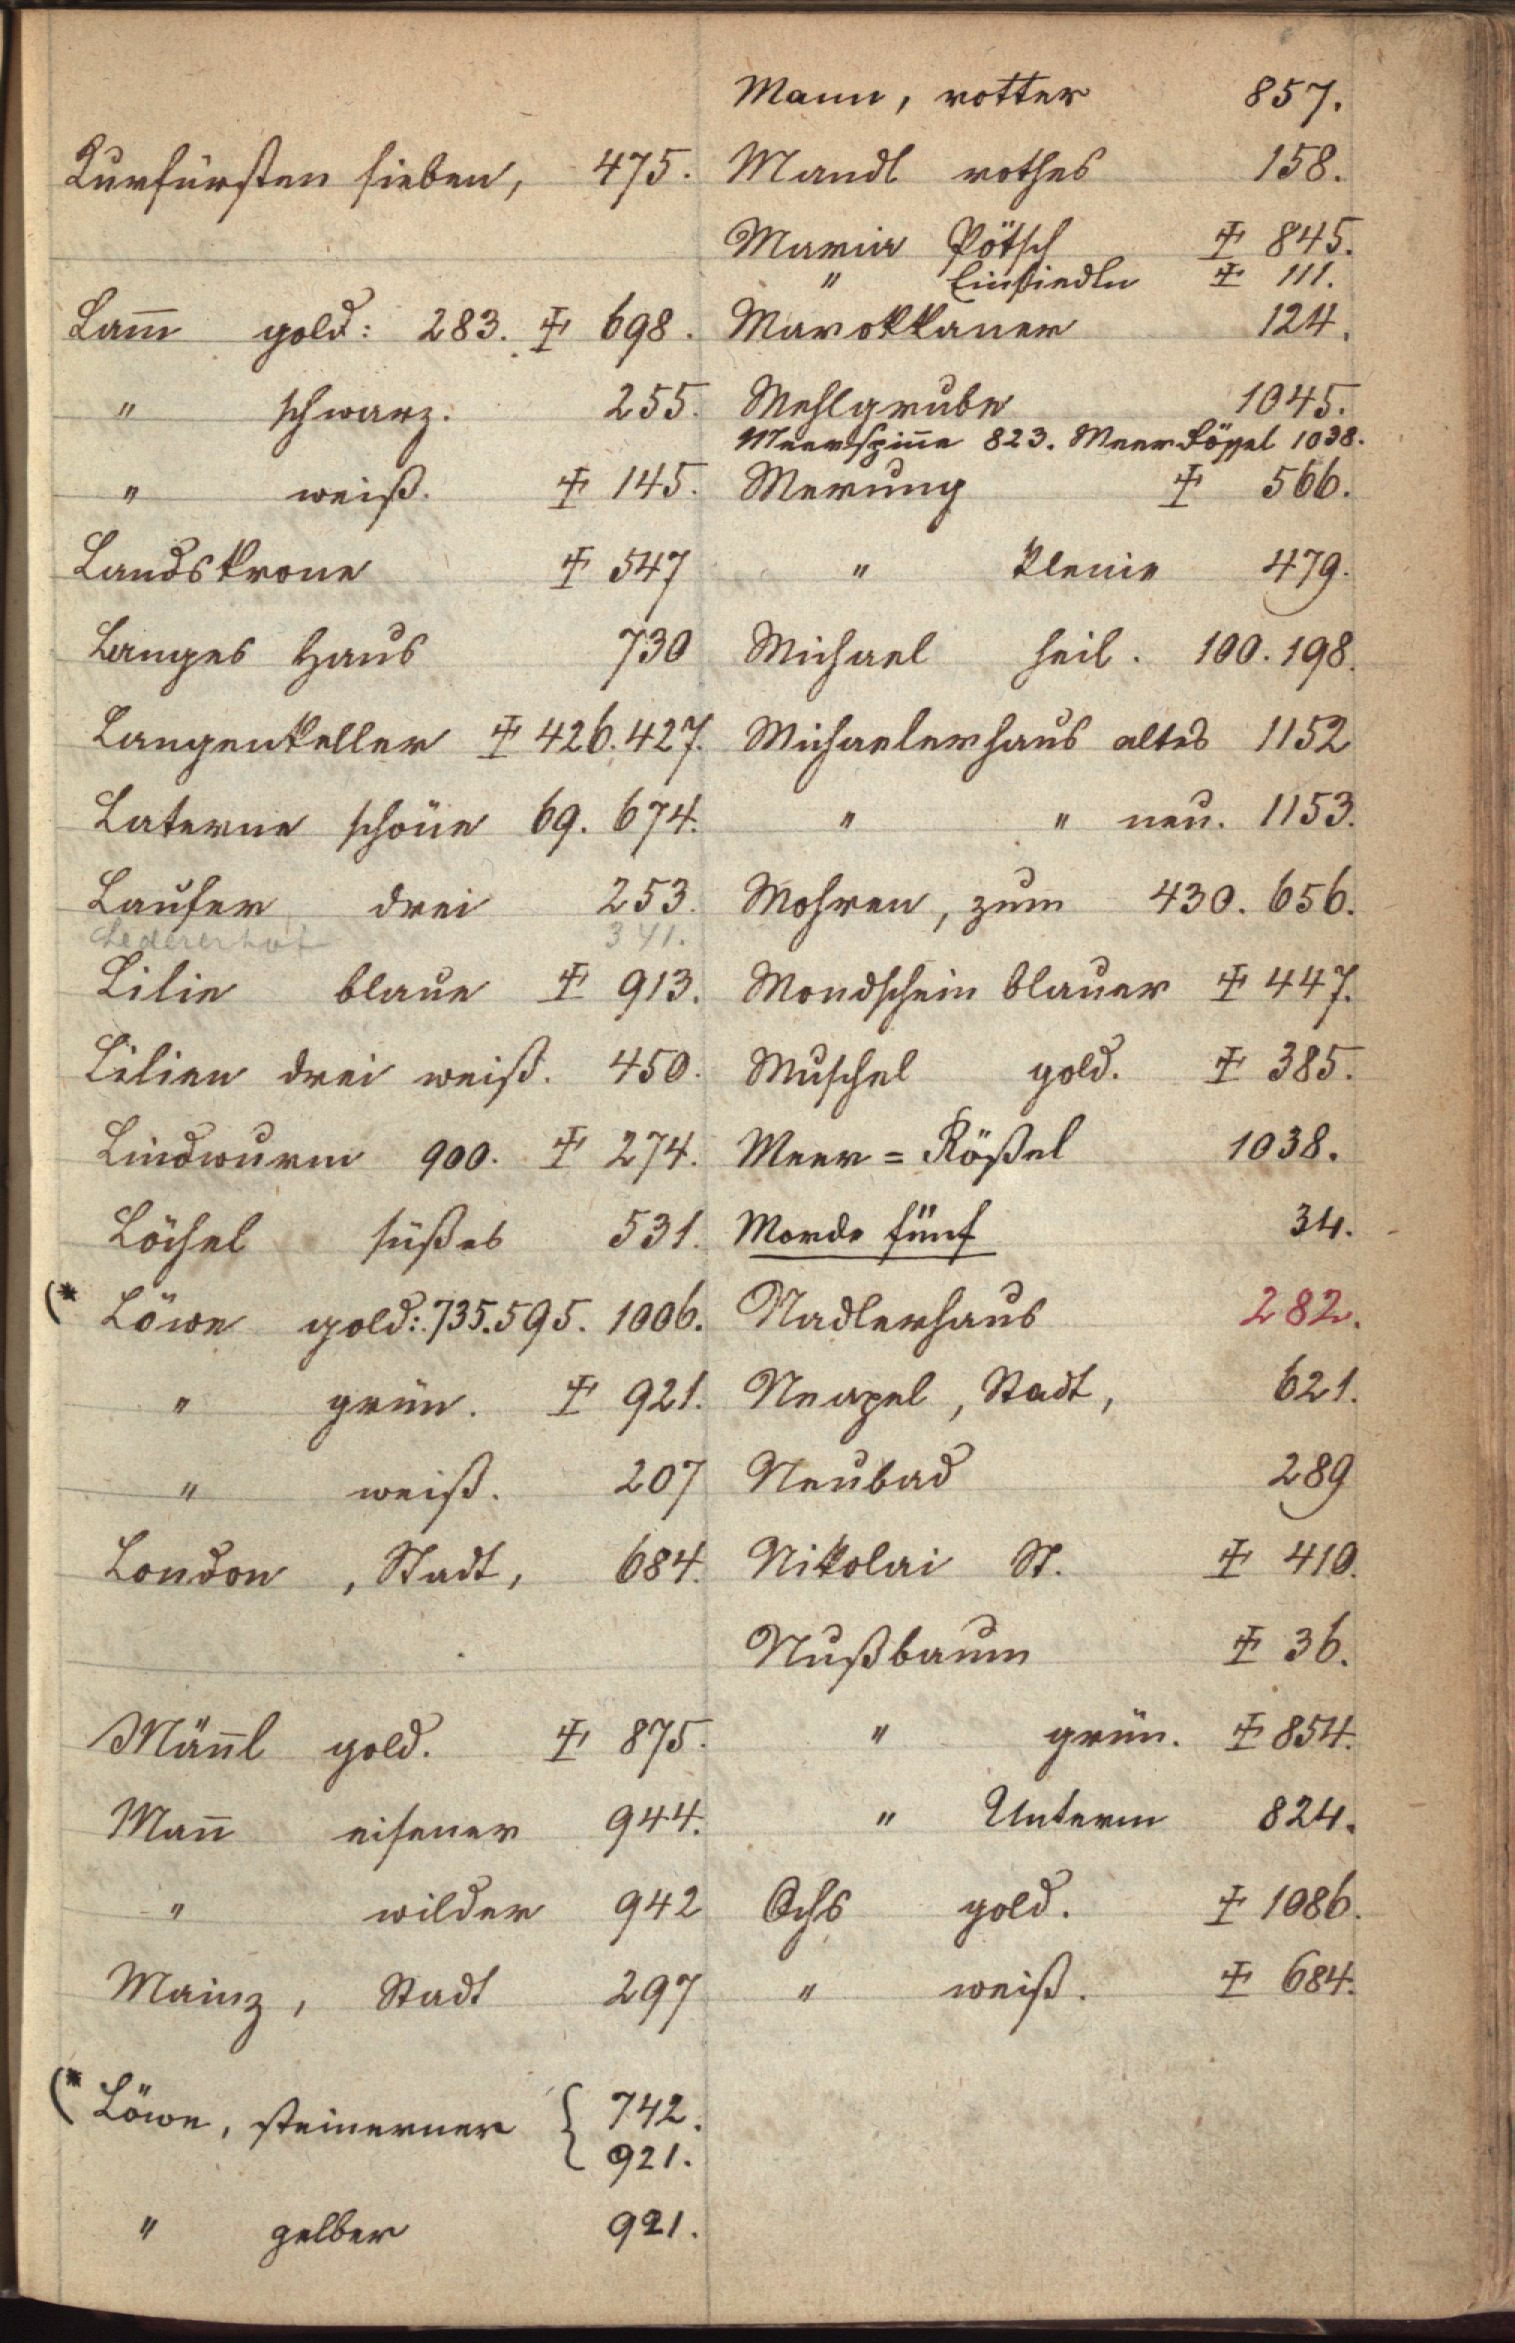 Kurfürsten sieben, 475.
Lam̄ gold: 283. ‡ 698.
" schwarz. 255.
" weiß. ‡ 145.
Landskrone ‡ 547
Langes Haus 730
Langenkeller ‡ 426.427.
Laterne schöne 69. 674.
Laufer drei 253.
Ledererhof 341.
Lilie blaue ‡ 913.
Lilien drei weiß. 450.
Lindwurm 900. ‡ 274.
Löchel süßes 531.
(* Löwe gold: 735.595. 1006.
" grün. ‡ 921.
" weiß. 207
London, Stadt, 684.
Män̄l gold. ‡ 875.
Man̄ eisener 944.
" wilder 942
Mainz, Stadt 297
(* Löwe, steinerner { 742.
921.
" gelber 921.
Mann, rotter 857.
Mandl rothes 158.
Maria Pötsch ‡ 845.
" Einsiedln ‡ 111.
Marokkaner 124.
Mehlgrube 1045.
Meerspin̄e 823. Meerrößel 1038.
Merung ‡ 566.
" kleine 479.
Michael heil. 100.198.
Michaelerhaus altes 1152
" " neu. 1153.
Mohren, zum 430. 656.
Mondschein blauer ‡ 447.
Muschel gold. ‡ 385.
Meer=Rößel 1038.
Morde fünf 34.
Nadlerhaus 282.
Neapel, Stadt, 621.
Neubad 289
Nikolai St. ‡ 410.
Nußbaum ‡ 36.
" grün. ‡ 854.
" Unterm 824.
Ochs gold. ‡ 1086.
" weiß. ‡ 684.